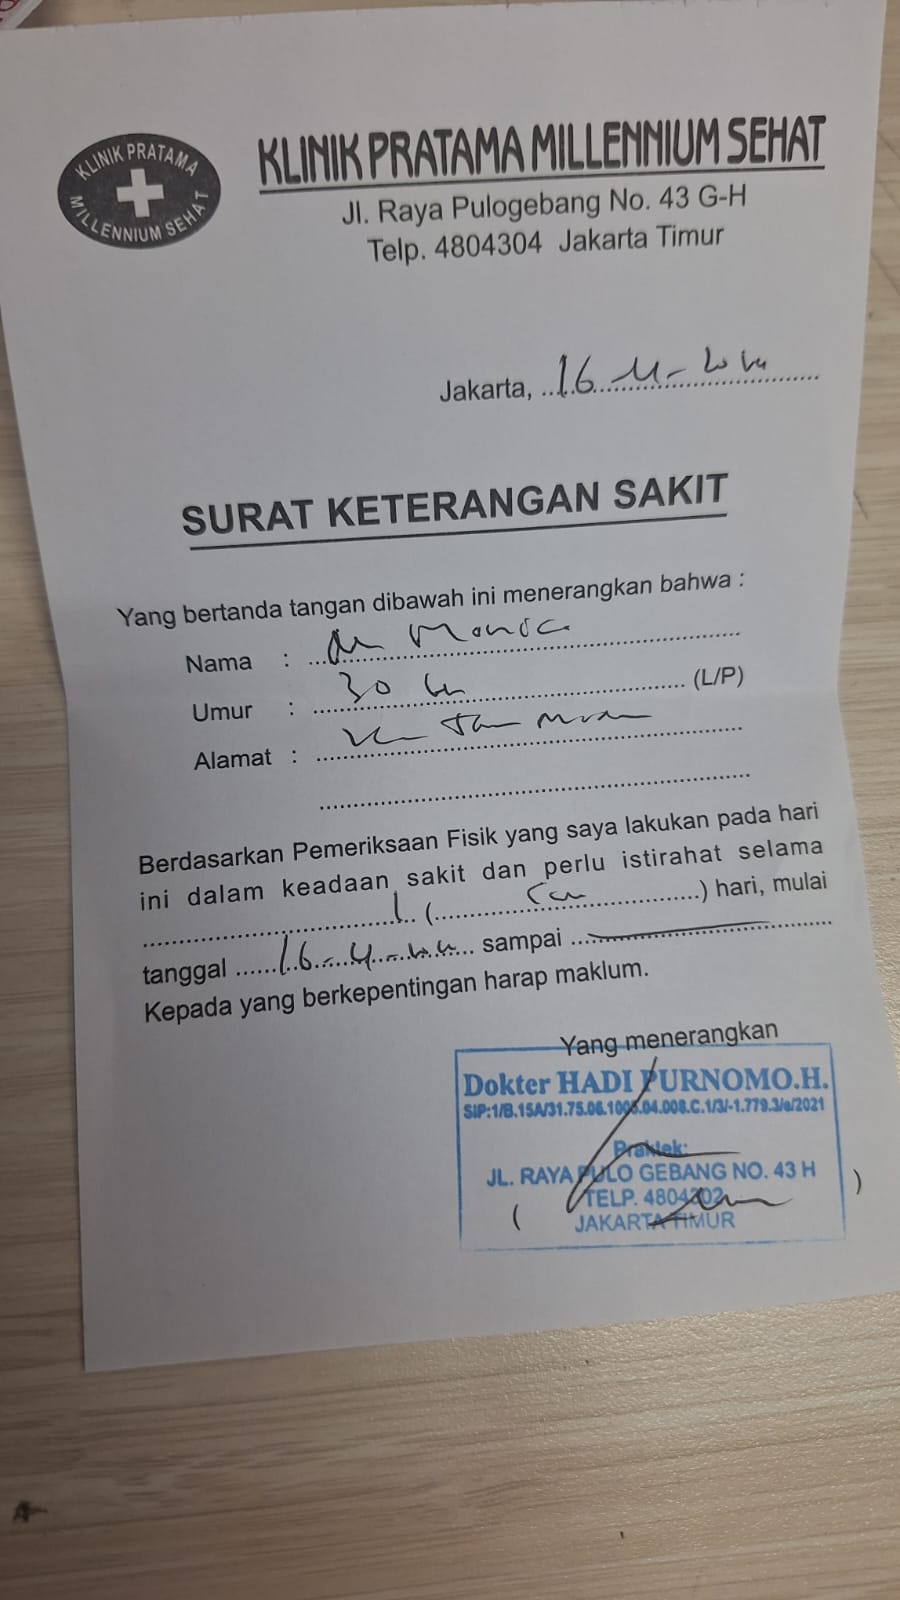 KLINIK PRATAMA
MILLENNIUM SEHAT
KLINIK PRATAMA MILLENNIUM SEHAT
Jl. Raya Pulogebang No. 43 G-H
Telp. 4804304 Jakarta Timur
Jakarta, 16
SURAT KETERANGAN SAKIT
Yang bertanda tangan dibawah ini menerangkan bahwa :
Nama :
Umur : 30 (L/P)
Alamat :
Berdasarkan Pemeriksaan Fisik yang saya lakukan pada hari
ini dalam keadaan sakit dan perlu istirahat selama
1 ( ) hari, mulai
tanggal 16 sampai
Kepada yang berkepentingan harap maklum.
Yang menerangkan
Dokter HADI PURNOMO.H.
Praktek:
JL. RAYA PULO GEBANG NO. 43 H
TELP. 4804202
JAKARTA TIMUR
( )